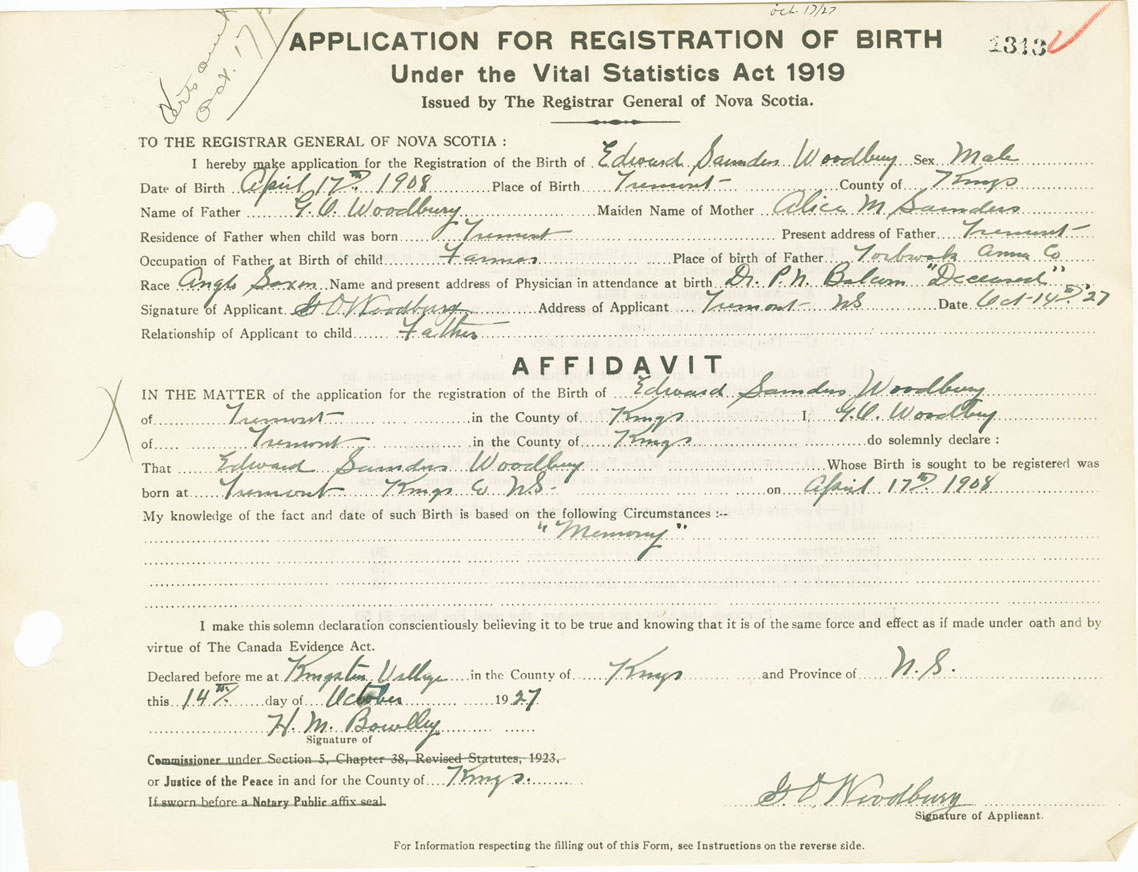 Oct. 17/27
APPLICATION FOR REGISTRATION OF BIRTH
1313
Oct. 17/
Under the Vital Statistics Act 1919
Issued by The Registrar General of Nova Scotia.
TO THE REGISTRAR GENERAL OF NOVA SCOTIA :
I hereby make application for the Registration of the Birth of Edward Saunders Woodbury Sex Male
Date of Birth April 17th 1908 Place of Birth Tremont County of Kings
Name of Father G. O. Woodbury Maiden Name of Mother Alice M Saunders
Residence of Father when child was born Tremont Present address of Father Tremont
Occupation of Father at Birth of child Farmer Place of birth of Father Torbrook Anna Co
Race Anglo Saxon Name and present address of Physician in attendance at birth Dr. P. N. Balcom "Deceased"
Signature of Applicant G O Woodbury Address of Applicant Tremont NS Date Oct-14th 27
Relationship of Applicant to child Father
AFFIDAVIT
IN THE MATTER of the application for the registration of the Birth of Edward Saunders Woodbury
of Tremont in the County of Kings I, G. O. Woodbury
of Tremont in the County of Kings do solemnly declare :
That Edward Saunders Woodbury Whose Birth is sought to be registered was
born at Tremont Kings Co NS- on April 17th 1908
My knowledge of the fact and date of such Birth is based on the following Circumstances :--
"Memory"
I make this solemn declaration conscientiously believing it to be true and knowing that it is of the same force and effect as if made under oath and by
virtue of The Canada Evidence Act.
Declared before me at Kingston Village in the County of Kings and Province of N.S.
this 14th day of October 1927
H. M. Bowlby
Signature of
Commissioner under Section 5, Chapter 38, Revised Statutes, 1923,
or Justice of the Peace in and for the County of Kings.
If sworn before a Notary Public affix seal.
G O Woodbury
Signature of Applicant.
For Information respecting the filling out of this Form, see Instructions on the reverse side.